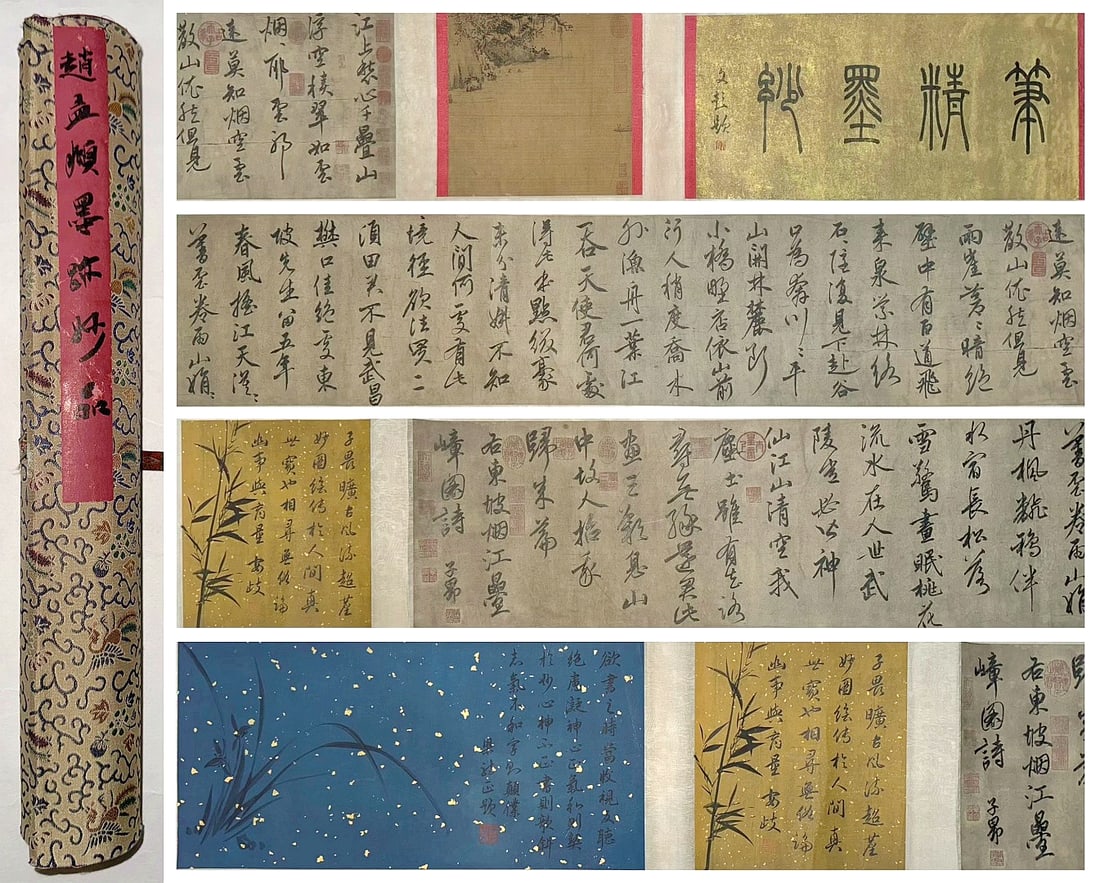 趙孟頫墨跡妙品
筆精墨妙
文彭題
江上愁心千疊山
浮空積翠如雲
烟々耶雲耶
遠莫知烟空雲
散山依然但見
遠莫知烟空雲
散山依然但見
兩崖蒼々暗絕
壁中有百道飛
來泉縈林絡
石々隱復見下赴谷
口為奔川々平
山開林麓斷
小橋野店依山前
行人稍度喬木
外漁舟一葉江
吞天使君何處
得此本點綴豪
末分清妍不知
人間何處有此
境徑欲往買二
頃田君不見武昌
樊口佳絕處東
坡先生留五年
春風搖江天漠々
暮雲卷雨山娟々
暮雲卷雨山娟
丹楓翻鴉伴
水宿長松落
雪驚晝眠桃花
流水在人世武
陵豈必皆神
仙江山清空我
塵土雖有去路
尋無緣還君此
畫三歎息山
中故人招我
歸來篇
右東坡烟江疊
嶂圖詩
子昂
子畏曠古風流超崖
妙圖繪傳於人間真
世寶也相尋無俗論
幽事與商量 安岐
右東坡烟江疊
嶂圖詩
子昂
子畏曠古風流超崖
妙圖繪傳於人間真
世寶也相尋無俗論
幽事與商量 安岐
欲書之時當收視反聽
絕慮凝神心正氣和則契
於妙心神不正書則欹斜
志氣不和字則顛仆
梁詩正題